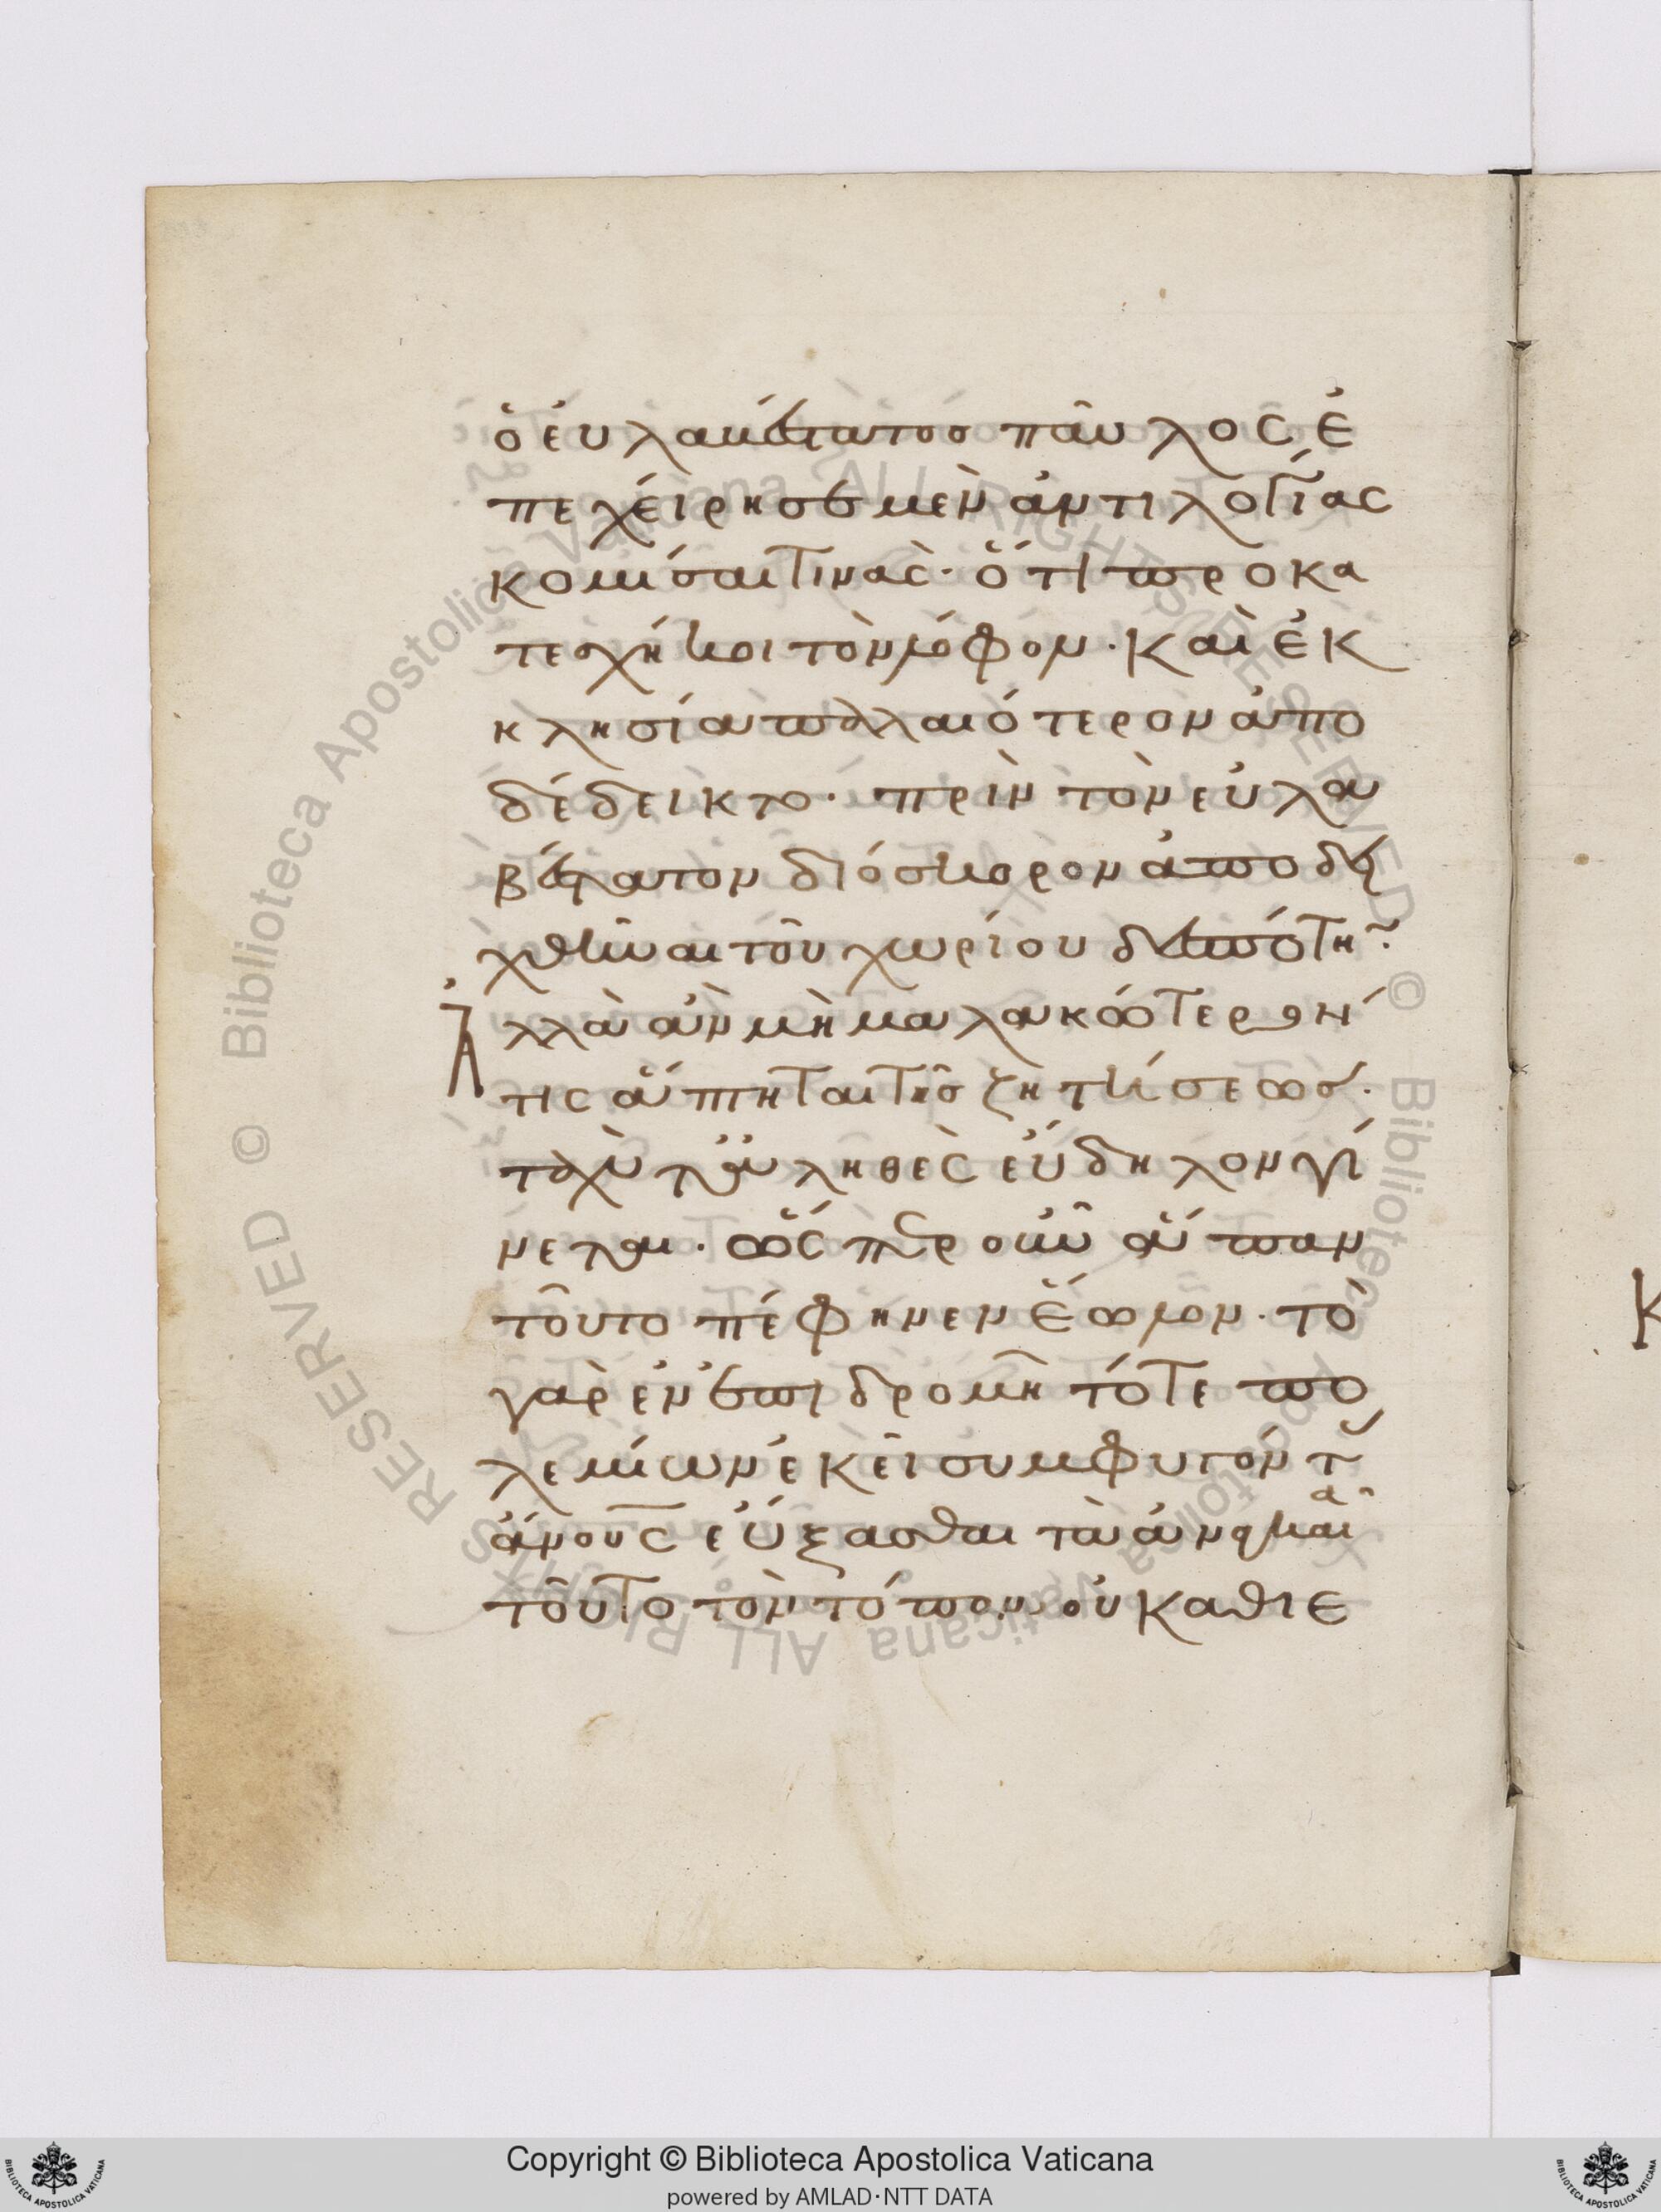 ὁ εὐλαβέστατος παῦλος ἐ
πεχείρησε μὲν ἀντιλογίας
κομίσαι τινὰς· ὅτι προκα
τεσχήκοι τὸν λόφον· καὶ ἐκ
κλησία παλαιότερον ἀπο
δέδεικτο· πρὶν τὸν εὐλα
βέστατον διόσκορον ἀποδει
χθῆναι τοῦ χωρίου δεσπότη~·
Ἀλλὰ ἂν μὴ μαλακώτερόν
τις ἅπτηται τῆς ζητήσεως·
ταχὺ τἀληθὲς εὔδηλον γί
νεται· ὥσπερ οὖν ἅπαν
τοῦτο πέφηνεν ἕωλον· τὸ
γὰρ ἐν ἐπιδρομῇ τότε πο
λεμίων ἐκεῖ συμφυγόντ
ἀνους εὔξασθαι τὰ ἀναγκαῖα
τοῦτο τὸν τόπον οὐ καθιε
Copyright © Biblioteca Apostolica Vaticana
powered by AMLAD·NTT DATA